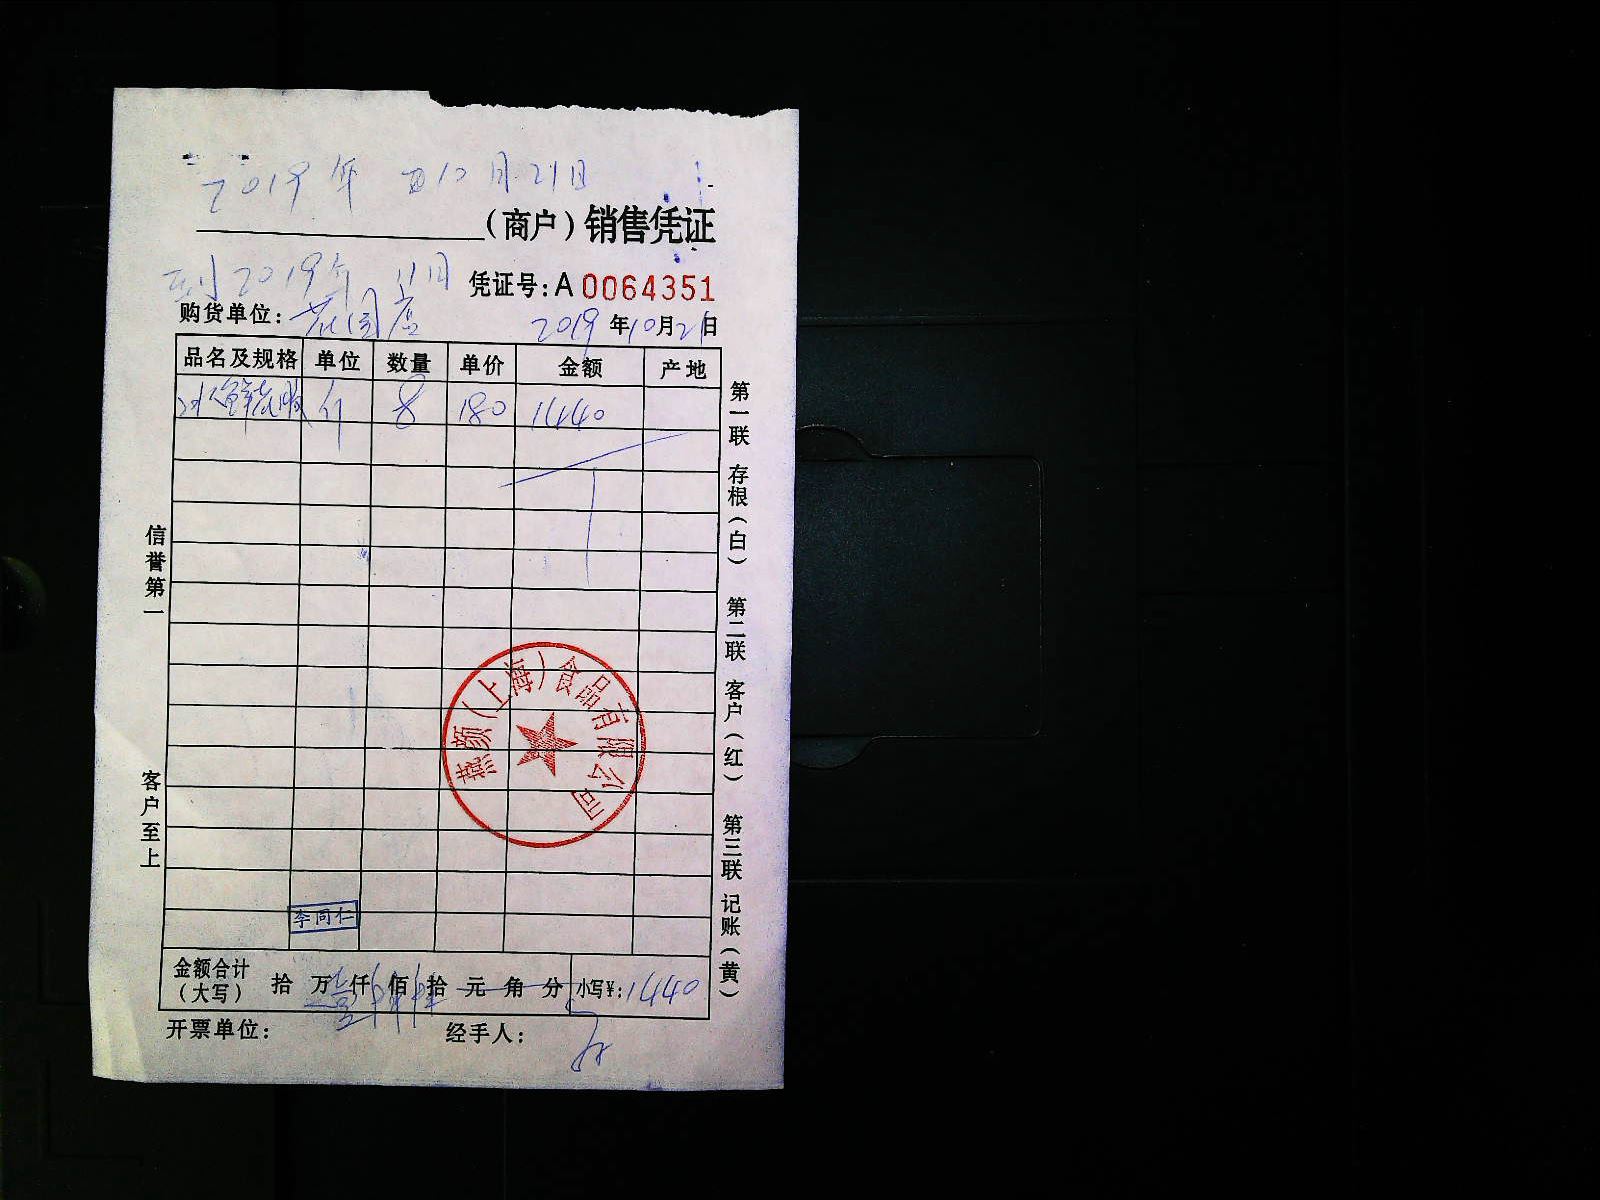 2019年 10月21日
（商户）销售凭证
到2019年 11月
凭证号：A 0064351
购货单位：花园店
2019年10月21日
品名及规格 单位 数量 单价 金额 产地
8 180 1440
金额合计（大写） 拾 万壹仟 佰 拾 元 角 分 小写¥：1440
开票单位： 经手人：
信誉第一 客户至上
第一联 存根（白） 第二联 客户（红） 第三联 记账（黄）
燕颜（上海）食品有限公司
李同仁